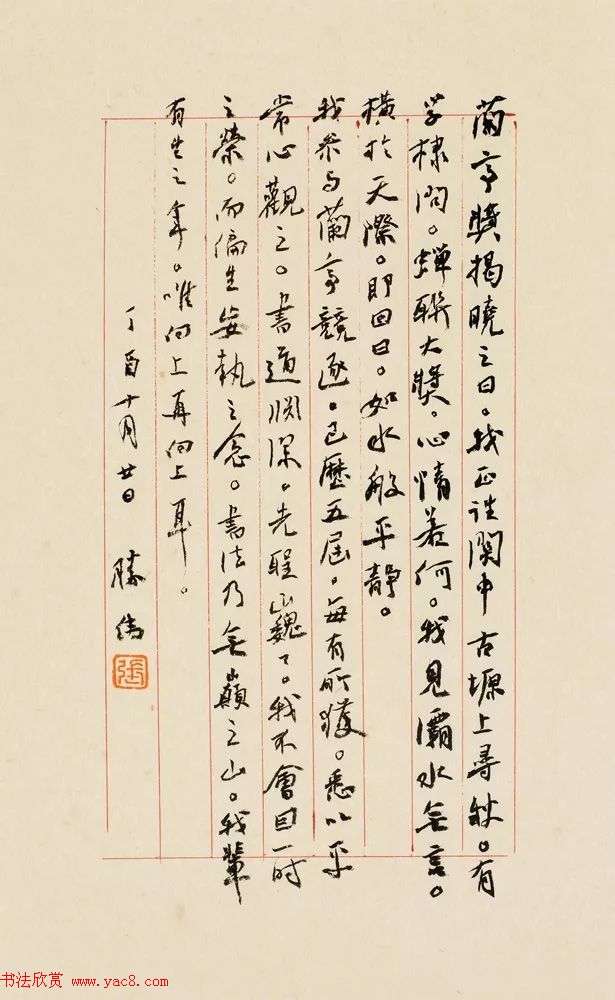 蘭亭獎揭曉之日。我正往關中古塬上尋秋。有
學棣問。蟬聯大獎。心情若何。我見灞水無言。
橫於天際。即回曰。如水般平靜。
我參与蘭亭競逐。已歷五屆。每有所獲。悉以平
常心觀之。書道淵深。先聖山巍巍。我不會因一時
之榮。而偏生妄執之念。書法乃無巔之山。我輩
有生之年。唯向上再向上耳。
丁酉十月廿日 勝偉
張
书法欣赏 www.yac8.com